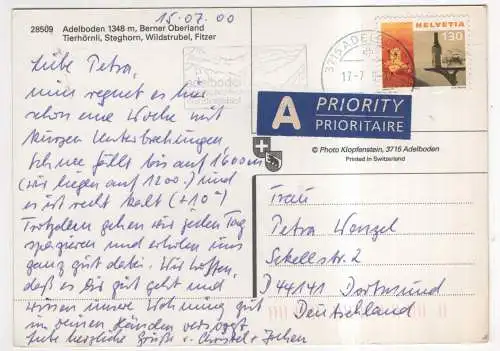 15.07.00
28509 Adelboden 1348 m, Berner Oberland
Tierhörnli, Steghorn, Wildstrubel, Fitzer
Liebe Petra,
nun regnet es hier
schon eine Woche mit
kurzen Unterbrechungen
Schnee fällt bis auf 1600m
(wir liegen auf 1200.) und
es ist recht kalt (+10°)
Trotzdem gehen wir jeden Tag
spazieren und erholen uns
ganz gut dabei. Wir hoffen,
daß es Dir gut geht und
wissen unsere Wohnung gut
in deinen Händen versorgt
herzliche Grüße v. Christel + Jochen
3715 ADELBODEN
17-7
adelboden
HELVETIA
130
A PRIORITY
PRIORITAIRE
© Photo Klopfenstein, 3715 Adelboden
Printed in Switzerland
Frau
Petra Wenzel
Sckellstr. 2
D 44141 Dortmund
Deutschland